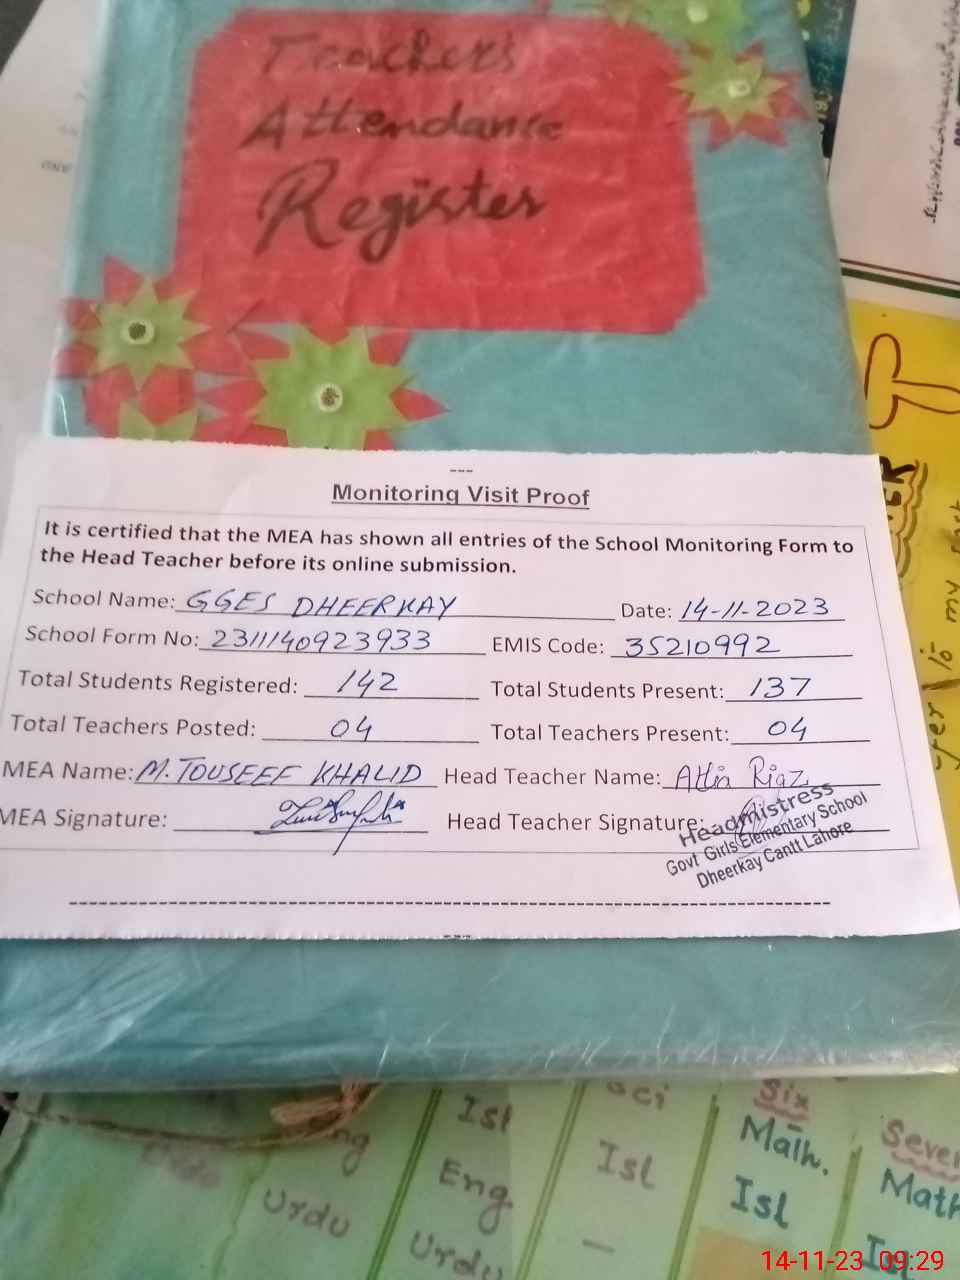 Teacher's
Attendance
Register
Monitoring Visit Proof
It is certified that the MEA has shown all entries of the School Monitoring Form to
the Head Teacher before its online submission.
School Name: GGES DHEERKAY Date: 14-11-2023
School Form No: 231114092 3933 EMIS Code: 35210992
Total Students Registered: 142 Total Students Present: 137
Total Teachers Posted: 04 Total Teachers Present: 04
MEA Name: M. TOUSEEF KHALID Head Teacher Name: Riaz
MEA Signature: Head Teacher Signature:
Headmistress
Govt Girls Elementary School
Dheerkay Cantt Lahore
Ist
Eng
Urdu
Urdu
Sci
Isl
Six
Math.
Isl
Seven
Math
14-11-23 09:29